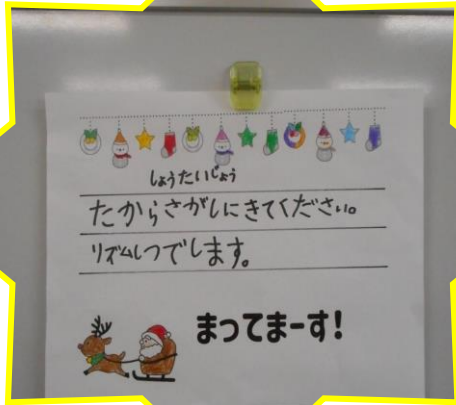 しょうたいじょう
たからさがしにきてください。
リズムしつでします。
まってまーす!